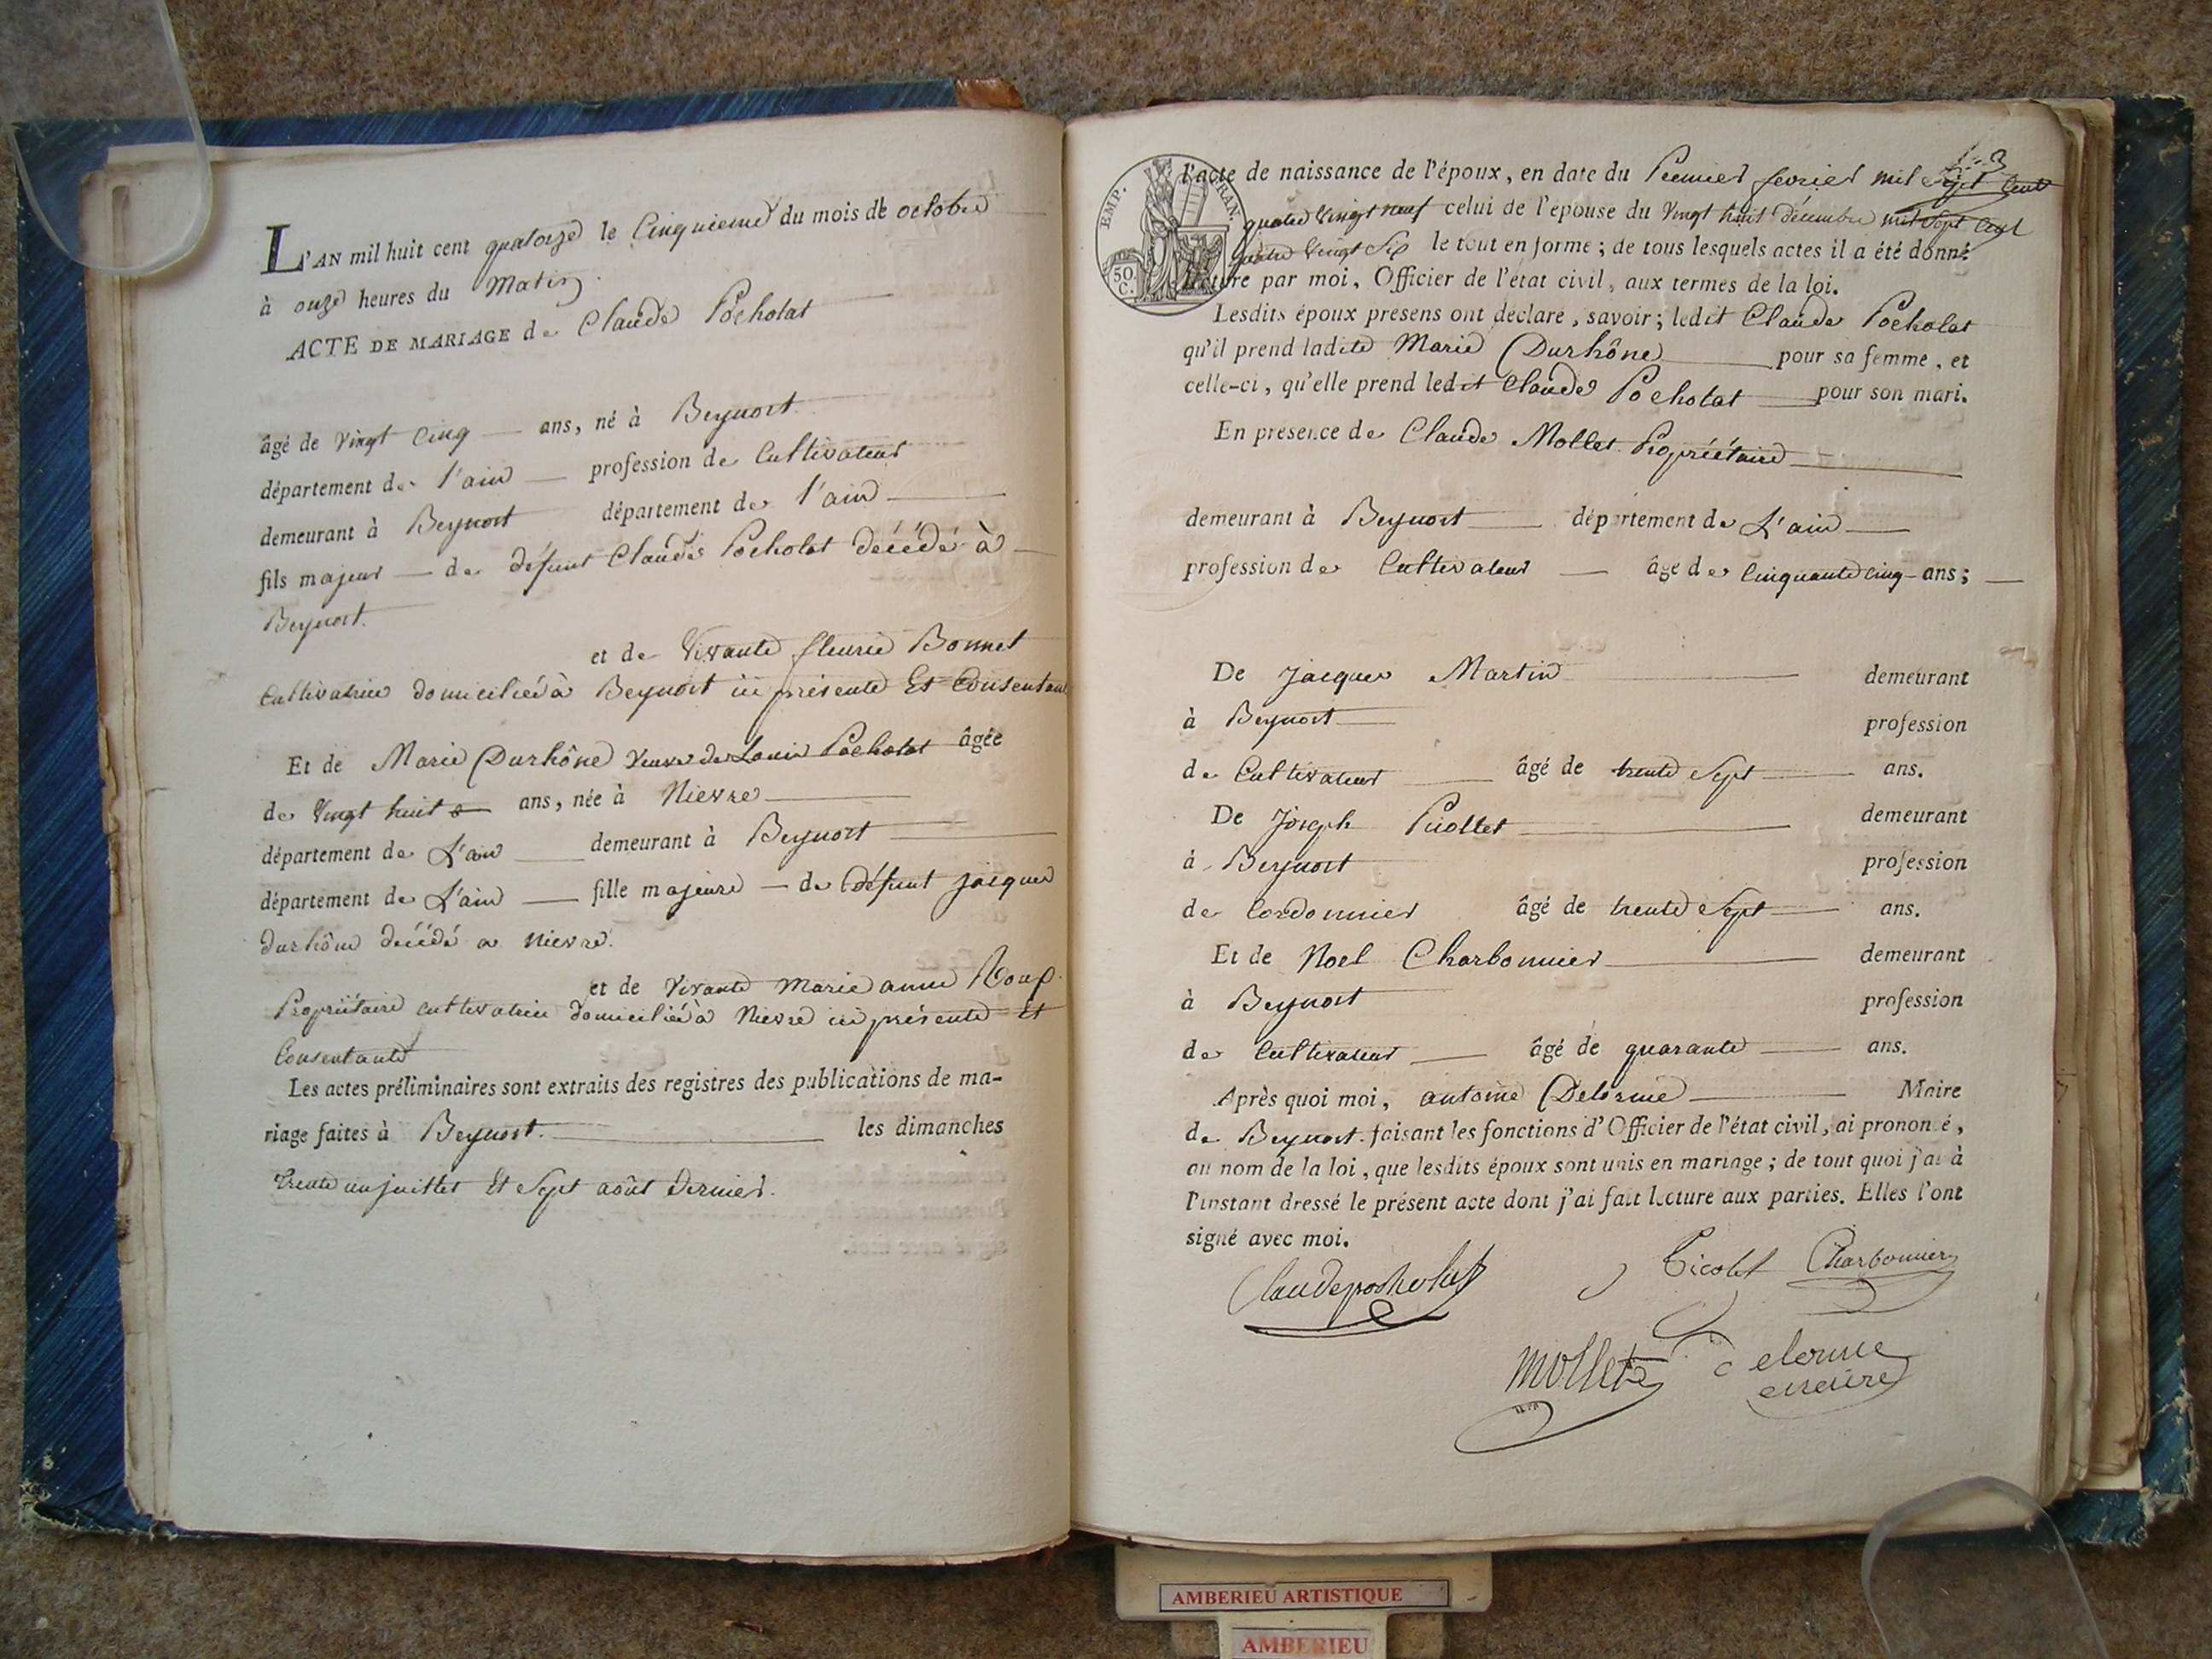 L'AN mil huit cent quatorze le Cinquieme du mois de octobre
à onze heures du Matin.
ACTE DE MARIAGE de Claude Pocholat
âgé de vingt Cinq ans, né à Beynost
département de l'ain profession de Cultivateur
demeurant à Beynost département de l'ain
fils majeur de défunt Claude Pocholat décédé à
Beynost.
et de Vivante fleurie Bonnet
Cultivatrice domiciliée à Beynost ici présente Et Consentante
Et de Marie Durhône veuve de Louis Pocholat âgée
de Vingt huit ans, née à Nievre
département de L'ain demeurant à Beynost
département de L'ain fille majeure de défunt jacques
durhône décédé a nievre.
et de Vivante Marie anne
Propriétaire cultivatrice domiciliée à Nievre ici présente Et
Consentante
Les actes préliminaires sont extraits des registres des publications de ma-
riage faites à Beynost. les dimanches
trente un juillet Et Sept août dernier.
EMP. FRAN.
50 C.
l'acte de naissance de l'époux, en date du Premier fevrier mil Sept Cent
quatre Vingt neuf celui de l'epouse du Vingt huit décembre mil Sept Cent
quatre Vingt Six le tout en forme ; de tous lesquels actes il a été donné
lecture par moi, Officier de l'état civil, aux termes de la loi.
Lesdits époux présens ont déclaré, savoir ; ledit Claude Pocholat
qu'il prend ladite Marie Durhône pour sa femme, et
celle-ci, qu'elle prend ledit Claude Pocholat pour son mari.
En présence de Claude Mollet Propriétaire
demeurant à Beynost département de L'ain
profession de Cultivateur âgé de Cinquante cinq ans ;
De Jacques Martin demeurant
à Beynost profession
de Cultivateur âgé de trente Sept ans.
De Joseph demeurant
à Beynost profession
de Cordonnier âgé de trente Sept ans.
Et de Noel Charbonnier demeurant
à Beynost profession
de Cultivateur âgé de quarante ans.
Après quoi moi, antoine Delorme Maire
de Beynost faisant les fonctions d'Officier de l'état civil, ai prononcé,
au nom de la loi, que lesdits époux sont unis en mariage ; de tout quoi j'ai à
l'instant dressé le présent acte dont j'ai fait lecture aux parties. Elles l'ont
signé avec moi.
Claude pocholat Charbonnier
Mollet Delorme
maire
AMBERIEU ARTISTIQUE
AMBERIEU